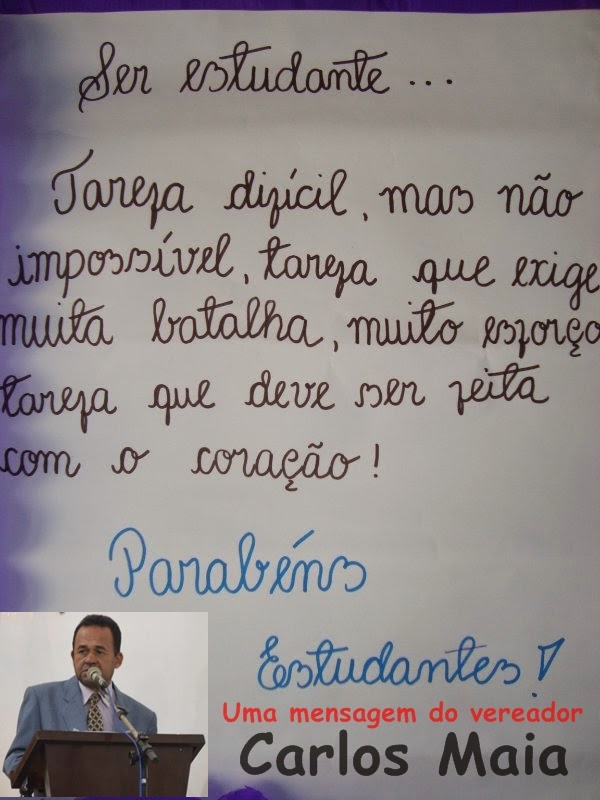 Ser estudante...
Tarefa difícil, mas não
impossível, tarefa que exige
muita batalha, muito esforço
tarefa que deve ser feita
com o coração!
Parabéns
Estudantes!
Uma mensagem do vereador
Carlos Maia